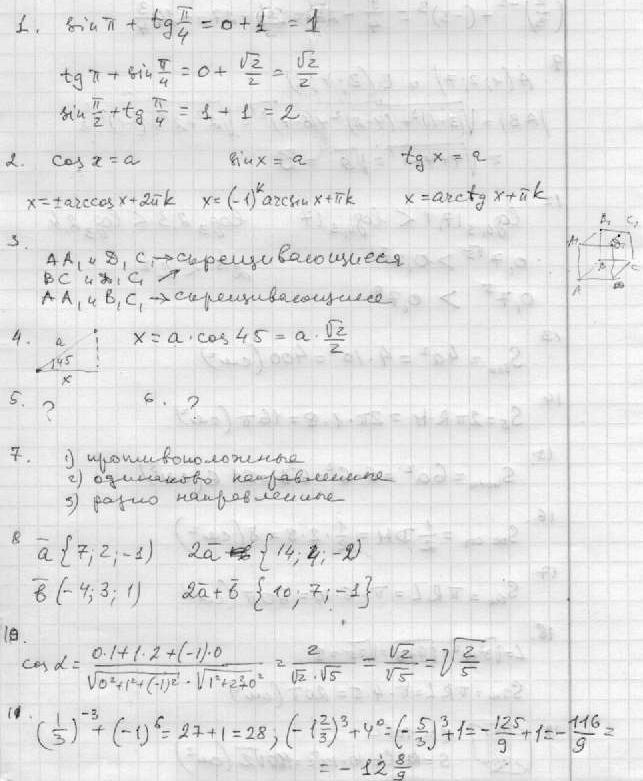 1. sin π + tg π/4 = 0 + 1 = 1
tg π + sin π/4 = 0 + √2/2 = √2/2
sin π/2 + tg π/4 = 1 + 1 = 2
2. cos x = a sin x = a tg x = a
x = ± arccos x + 2πk x = (-1)^k arcsin x + πk x = arctg x + πk
3.
AA₁ и D₁C₁ → скрещивающиеся
BC и D₁C₁ ↗
AA₁ и B₁C₁ → скрещивающиеся
B₁ C₁
A₁ D₁
B C
A D
4. a 45 x x = a · cos 45 = a · √2/2
5. ? 6. ?
7. 1) противоположные
2) одинаково направленные
3) разно направленные
8 a̅ {7; 2; -1) 2a̅ {14; 4; -2)
b̅ (-4; 3; 1) 2a̅ + b̅ {10; 7; -1}
10.
cos α = (0·1 + 1·2 + (-1)·0)/(√(0² + 1² + (-1)²) · √(1² + 2² + 0²)) = 2/(√2 · √5) = √2/√5 = √(2/5)
11. (1/3)^-3 + (-1)^6 = 27 + 1 = 28, (-1 2/3)^3 + 4^0 = (-5/3)^3 + 1 = -125/9 + 1 = -116/9 =
= -12 8/9